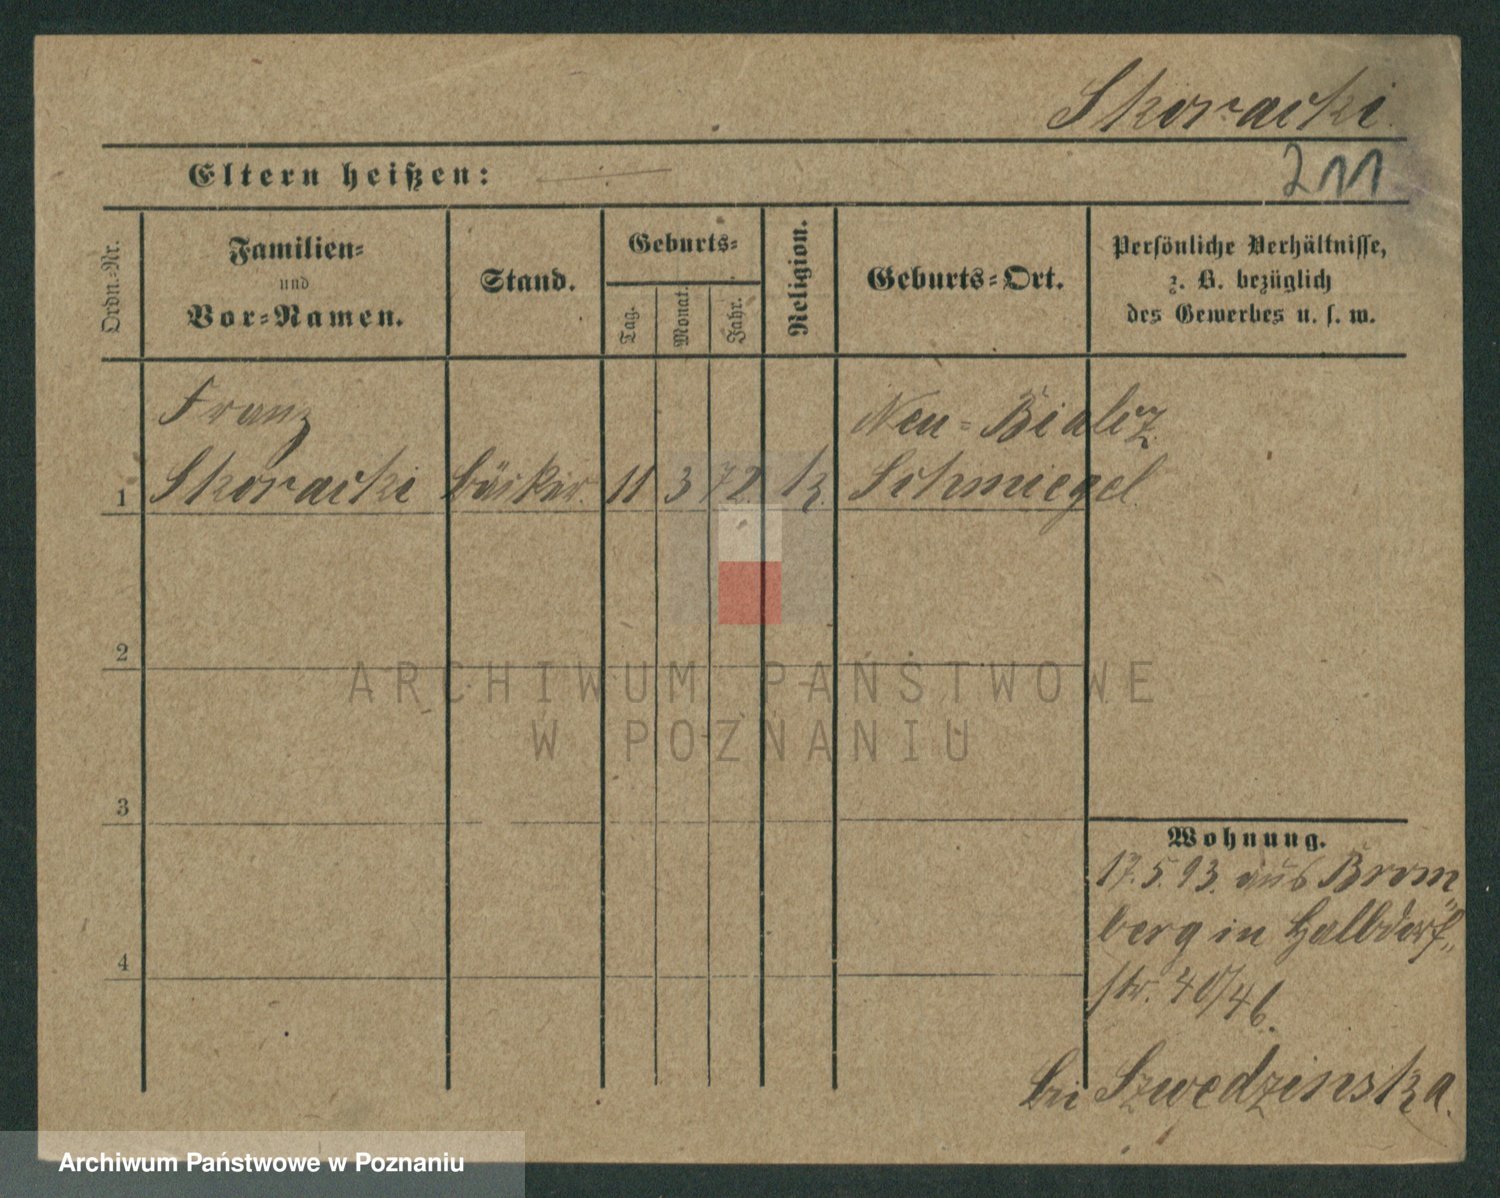 Skoracki.
Eltern heißen: —
211
Ordn.-Nr.
Familien-
und
Vor-Namen.
Stand.
Geburts-
Tag.
Monat.
Jahr.
Religion.
Geburts-Ort.
Persönliche Verhältnisse,
z. B. bezüglich
des Gewerbes u. s. w.
Franz
Neu-Bialcz
1 Skoracki Bäcker. 11 3 72. k. Schmiegel.
2
3
4
Wohnung.
17.5.93. aus Brom
berg in Halbdorf„
str.
bei Szwedzinska.
ARCHIWUM PAŃSTWOWE
W POZNANIU
Archiwum Państwowe w Poznaniu